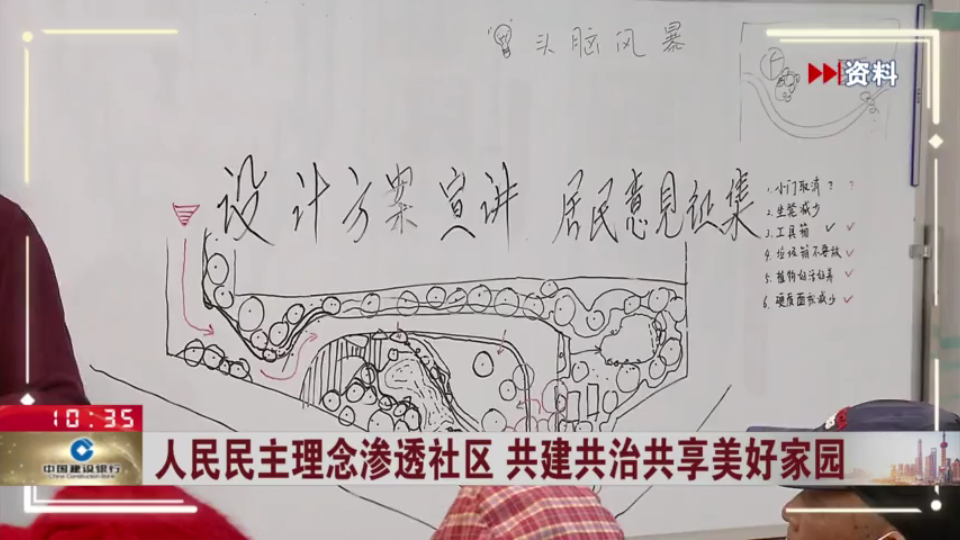 头脑风暴
资料
设计方案宣讲 居民意见征集
1. 小门取消 ? ?
2. 坐凳减少
3. 工具箱 ✓ ✓
4. 垃圾箱不要放 ✓
5. 植物好活好养 ✓
6. 硬质面积减少 ✓
10:35
中国建设银行
China Construction Bank
人民民主理念渗透社区 共建共治共享美好家园